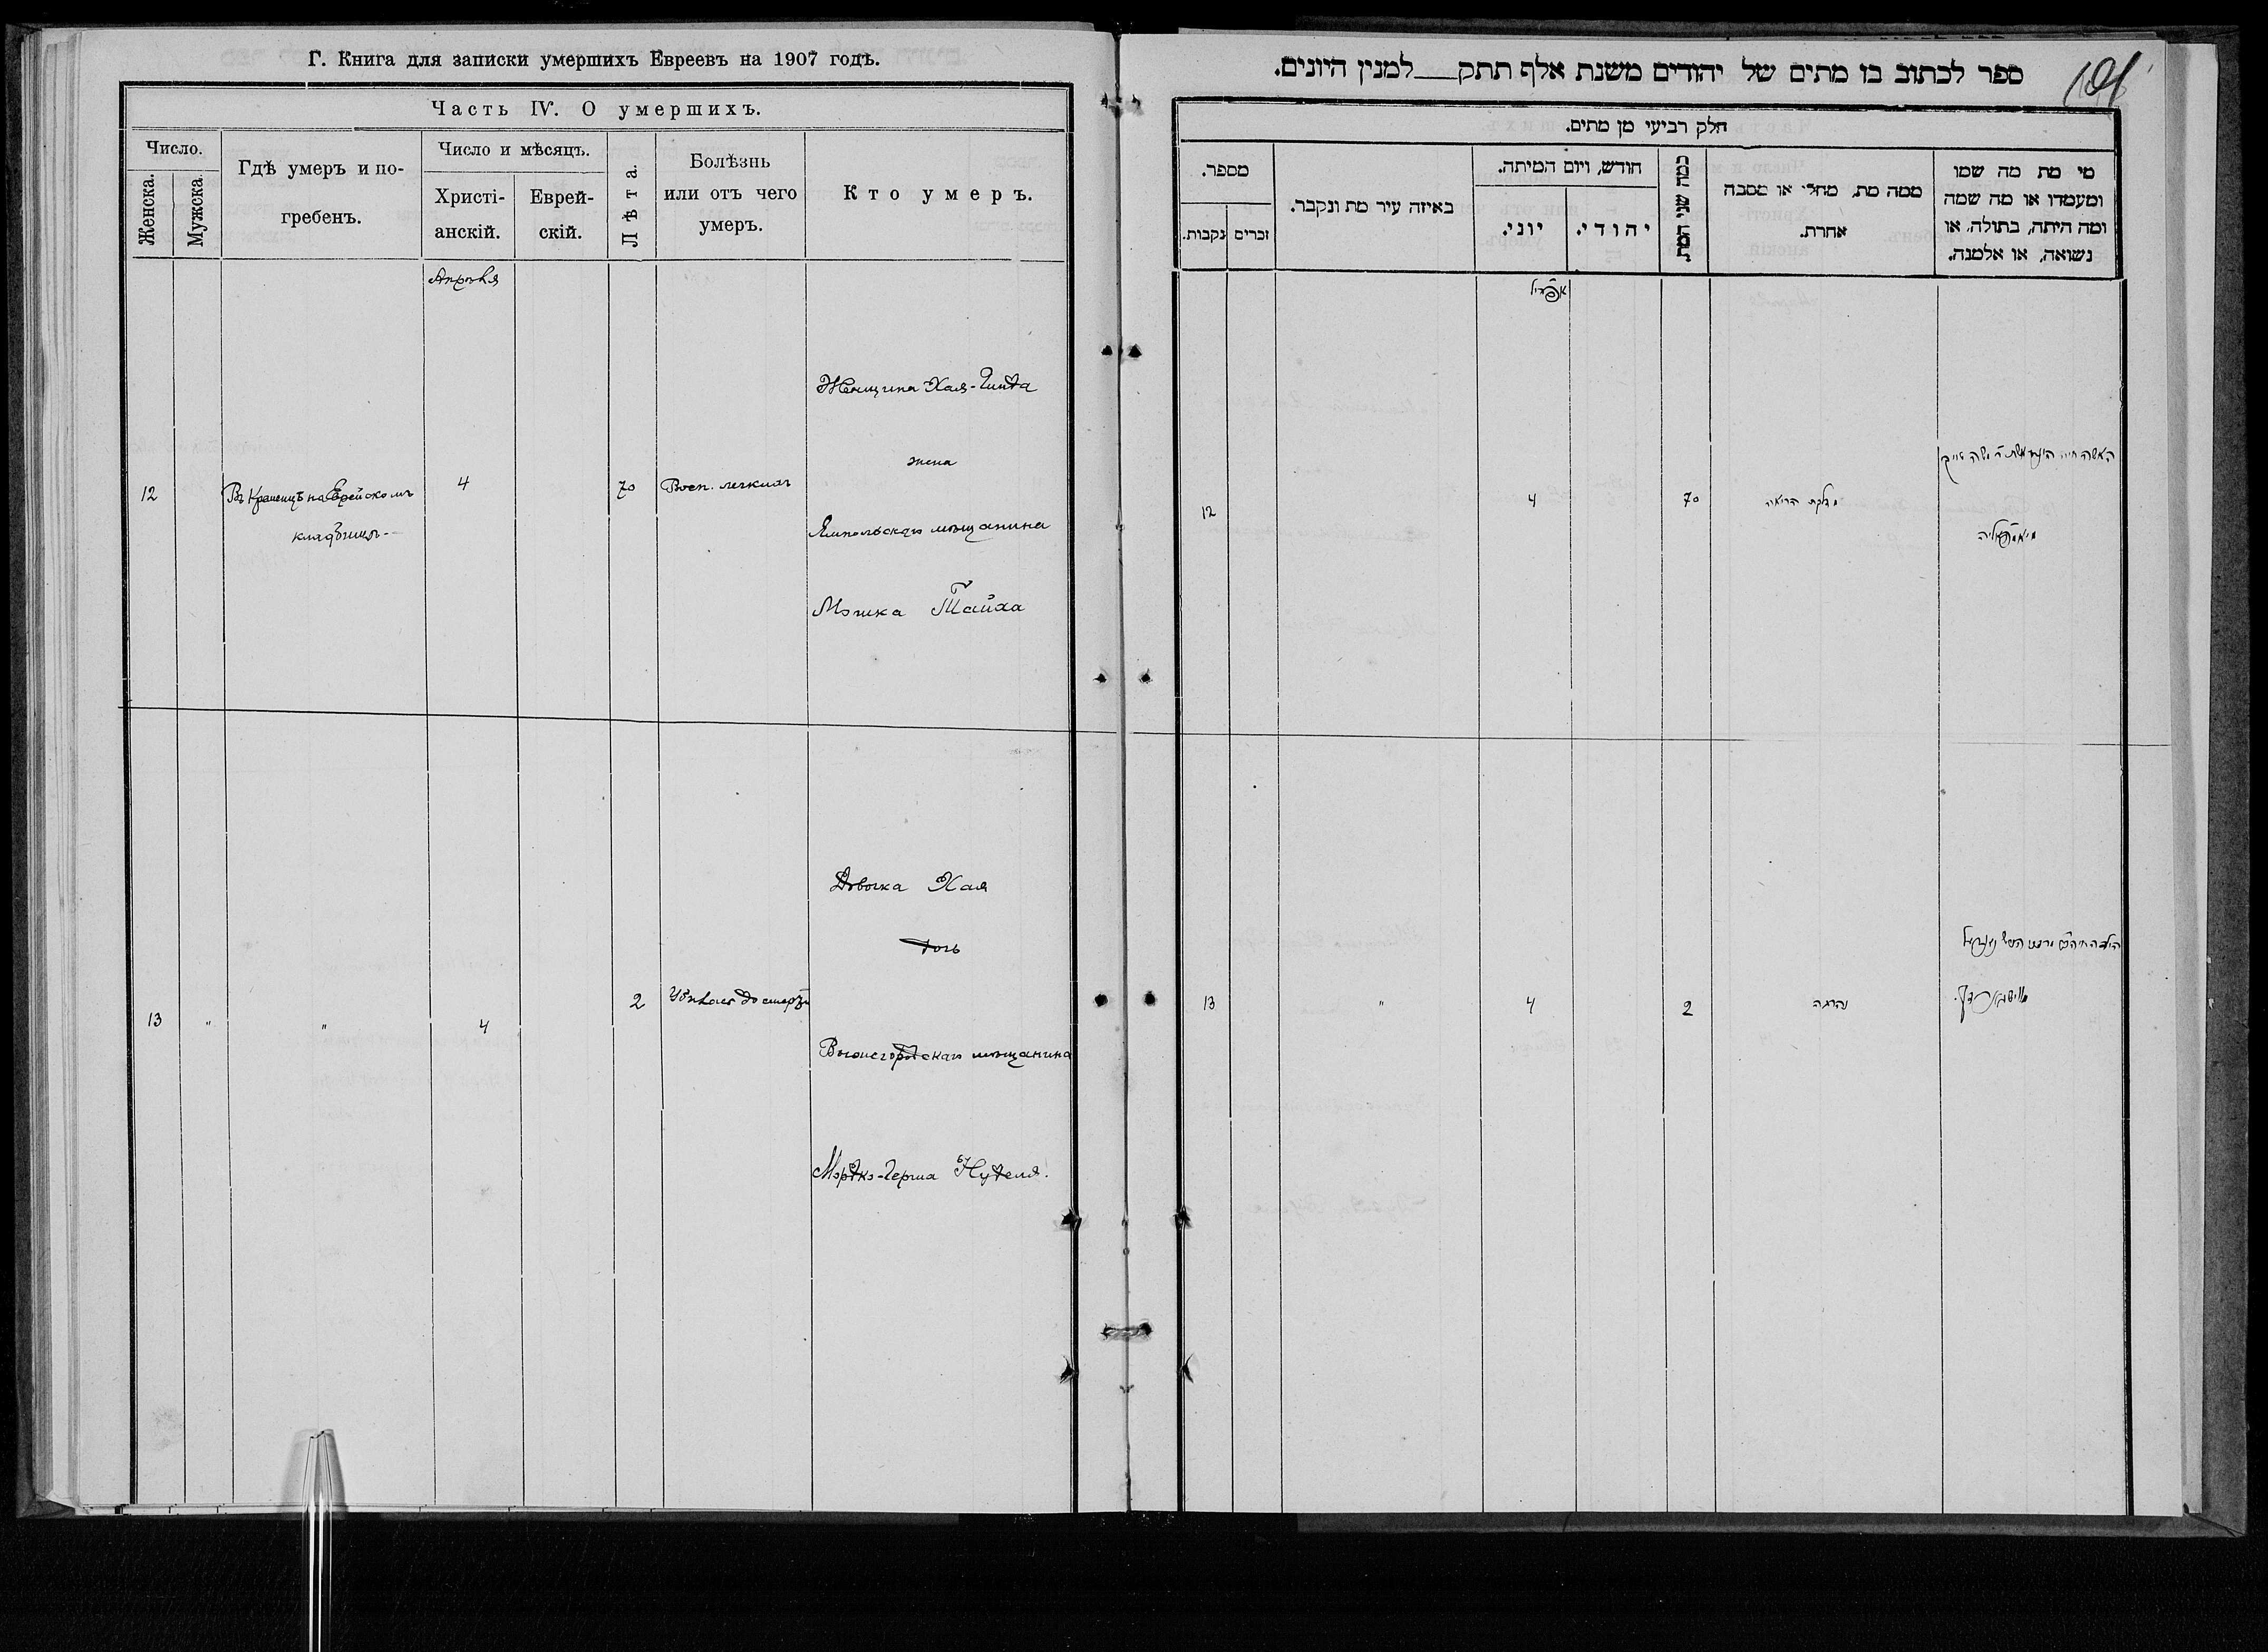 Г. Книга для записки умершихъ Евреевъ на 1907 годъ.
Часть IV. О умершихъ.
Число.
Женска.
Мужска.
Гдѣ умеръ и по-
гребенъ.
Число и мѣсяцъ.
Христі-
анскій.
Еврей-
скій.
Лѣта.
Болѣзнь
или отъ чего
умеръ.
Кто умеръ.
Апрѣля
12
Въ Кременцѣ на Еврейскомъ
кладбищѣ
4
70
Восп. легкихъ
Женщина Хая-Гинда
жена
Ямпольскаго мѣщанина
Мошка Тайха
13
"
"
4
2
Дѣвочка Хая
дочь
Вышегородскаго мѣщанина
Мордко-Герша Нуделя.
ספר לכתוב בו מתים של יהודים משנת אלף תתק למנין היונים.
חלק רביעי מן מתים.
מספר.
נקבות.
זכרים
באיזה עיר מת ונקבר.
חודש, ויום המיתה.
יוני.
יהודי.
כמה שני המת
ממה מת, מחלי או מסבה
אחרת.
מי מת מה שמו
ומעמדו או מה שמה
ומה היתה, בתולה, או
נשואה, או אלמנה.
אפריל
12
4
70
דלקת הריאה
13
"
4
2